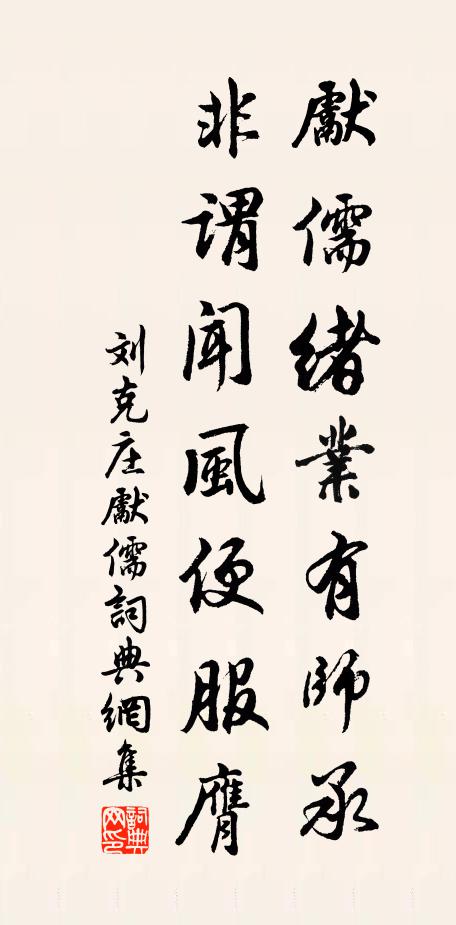 獻儒緒業有師承
非謂聞風便服膺
刘克庄獻儒詞典網集
詞典網印